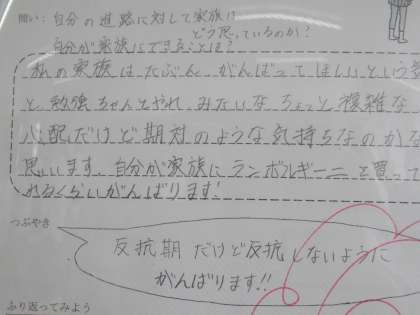 問い：自分の進路に対して家族は
どう思っているのか？
自分が家族にできることは？
私の家族はたぶん、がんばってほしいという気
と、勉強ちゃんとやれ、みたいなちょっと複雑な
心配だけど期対のような気持ちなのかな
思います。自分が家族にランボルギーニを買って
れるくらいがんばります！
つぶやき
反抗期だけど反抗しないように
がんばります!!
ふり返ってみよう